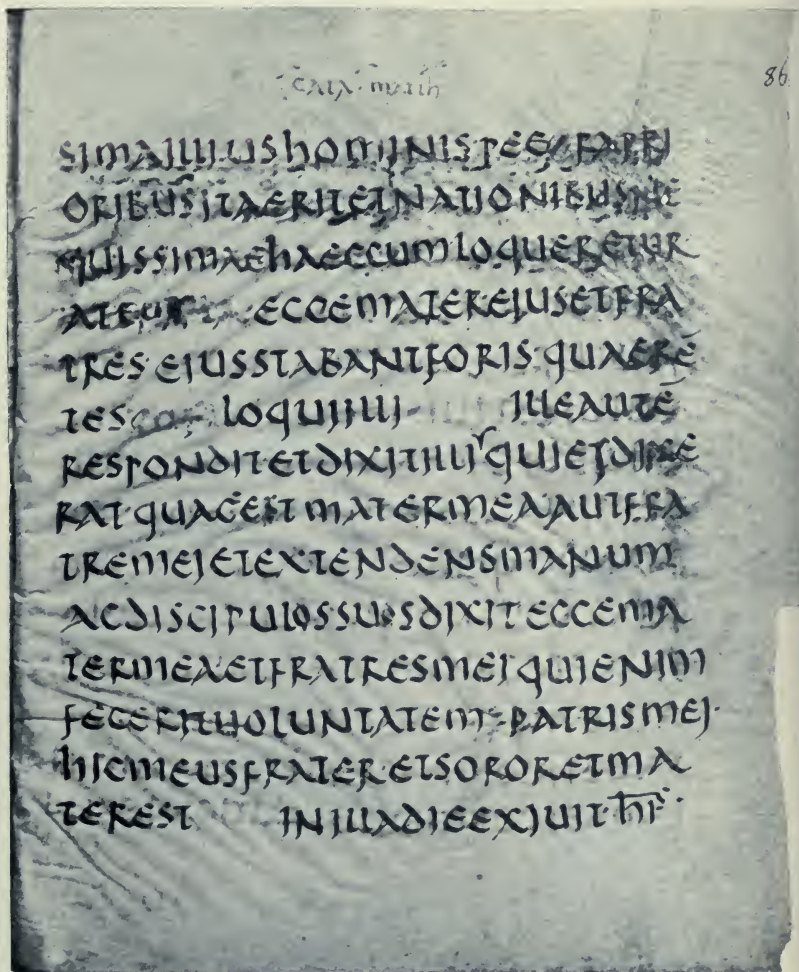 CATA · MATTH
86
SIMAILLIUSHOMINIS
ORIBUSITAERITETNATIONIBUSNE
QUISSIMAEHAECCUMLOQUERETUR
ECCEMATEREIUSETFRA
TRESEIUSSTABANTFORISQUAERĒ
TES LOQUIILLI ILLEAUTĒ
RESPONDITETDIXITILLIQUIEIDIXE
RATQUAEESTMATERMEAAUTFRA
TREMEIETEXTENDENSMANUM
ACDISCIPULOSSUOSDIXITECCEMA
TERMEAETFRATRESMEIQUIENIM
FECERITUOLUNTATEMPATRISMEI·
HICMEUSFRATERETSORORETMA
TEREST INILLADIEEXIUIT